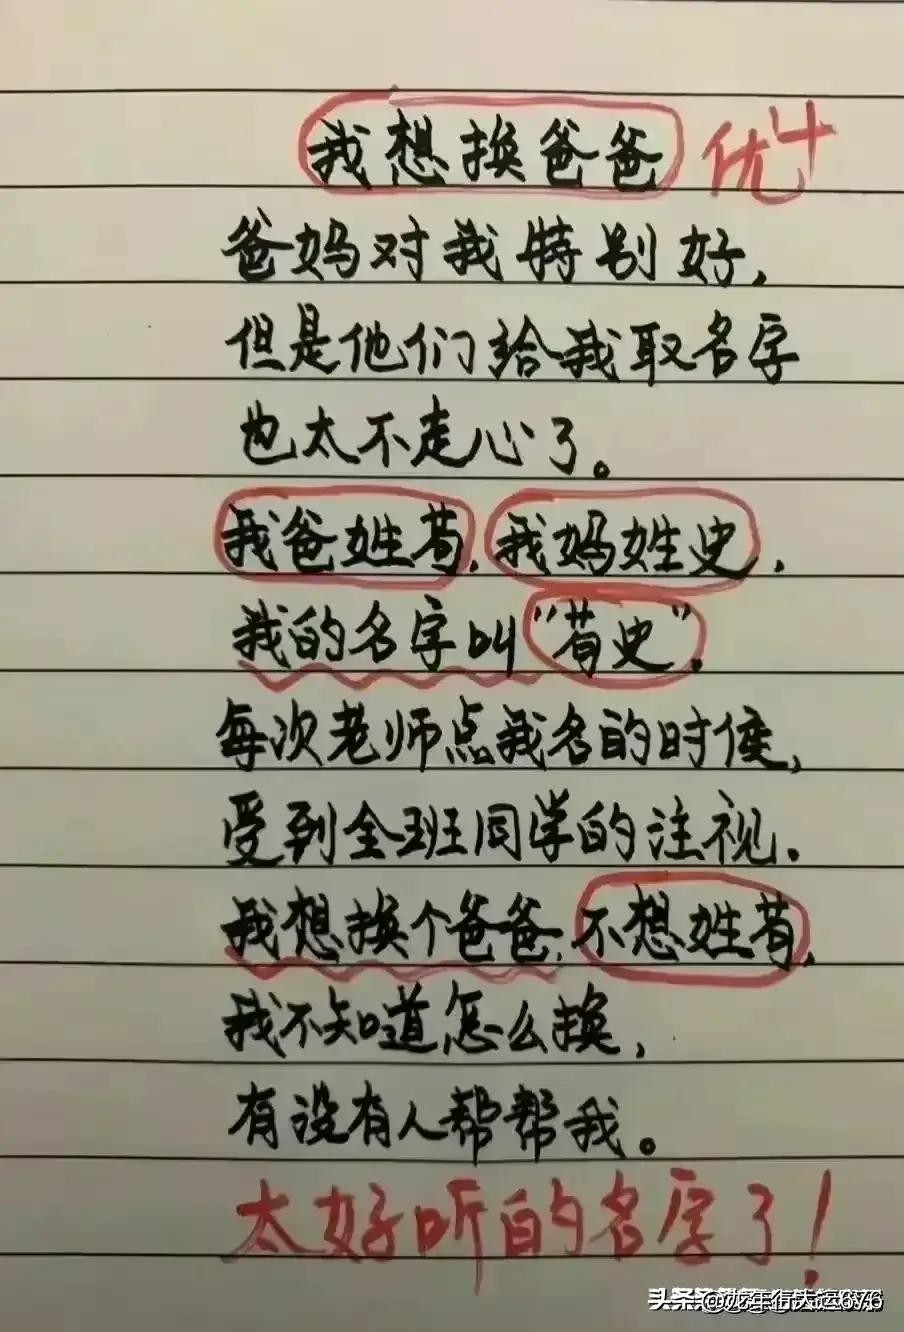 我想换爸爸 优+
爸妈对我特别好,
但是他们给我取名字
也太不走心了。
我爸姓苟,我妈姓史,
我的名字叫“苟史”.
每次老师点我名的时候,
受到全班同学的注视.
我想换个爸爸,不想姓苟,
我不知道怎么换,
有没有人帮帮我。
太好听的名字了!